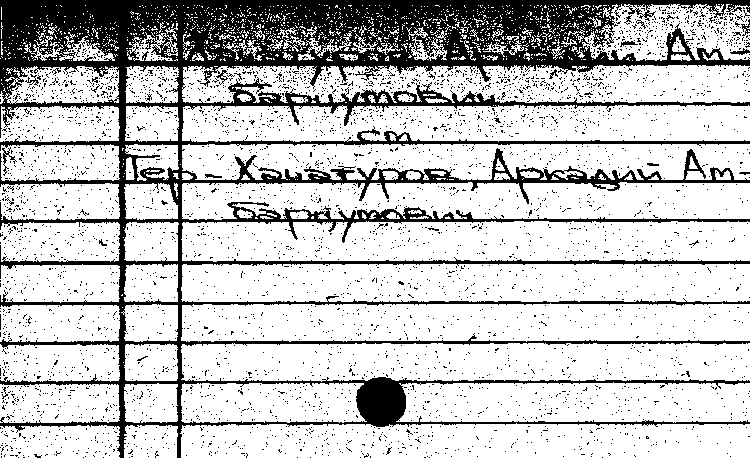 Хачатуров, Аркадий Ам-
барцумович
см.
Тер-Хачатуров, Аркадий Ам-
барцумович